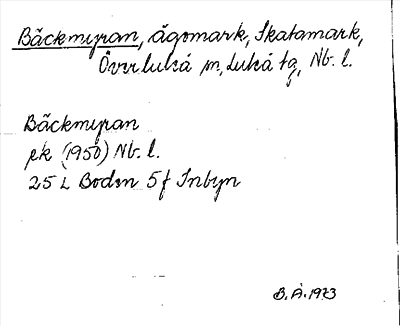 Bäckmyran, ägomark, Skatamark,
Överluleå sn, Luleå tg, Nb. l.
Bäckmyran
ek (1950) Nb. l.
25 L Boden 5f Inbyn
B. Å. 1973